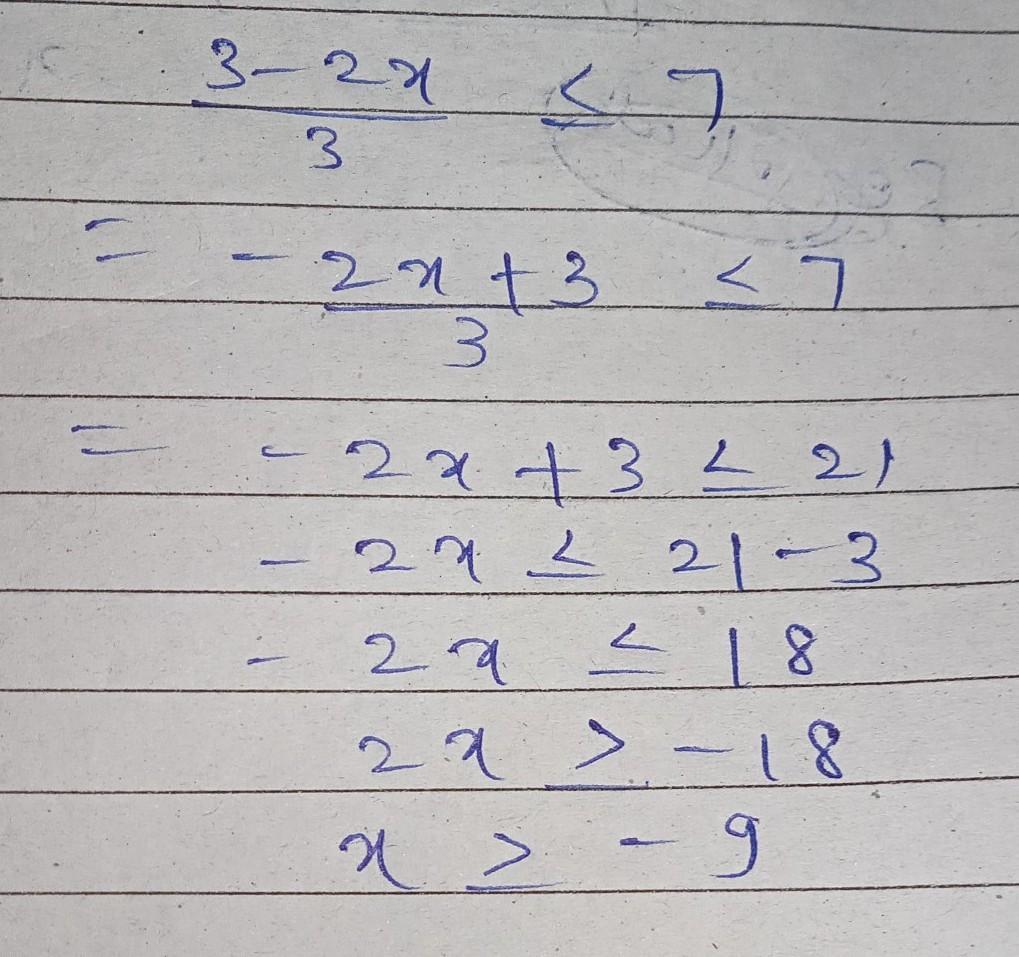 3-2x/3 ≤ 7
= -2x+3/3 ≤ 7
= -2x+3 ≤ 21
-2x ≤ 21-3
-2x ≤ 18
2x ≥ -18
x ≥ -9